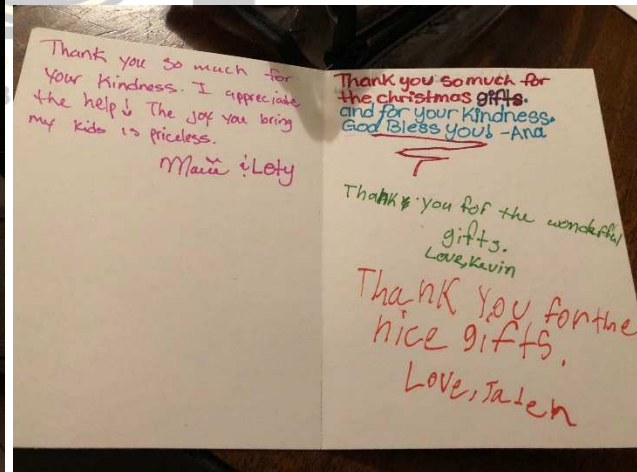 Thank you so much for
your kindness. I appreciate
the help! The joy you bring
my kids is priceless.
& Lety
Thank you so much for
the christmas gifts.
and for your kindness.
God Bless you! -Ana
Thank you for the wonderful
gifts.
Love, Kevin
Thank You for the
nice gifts.
Love, Jalen